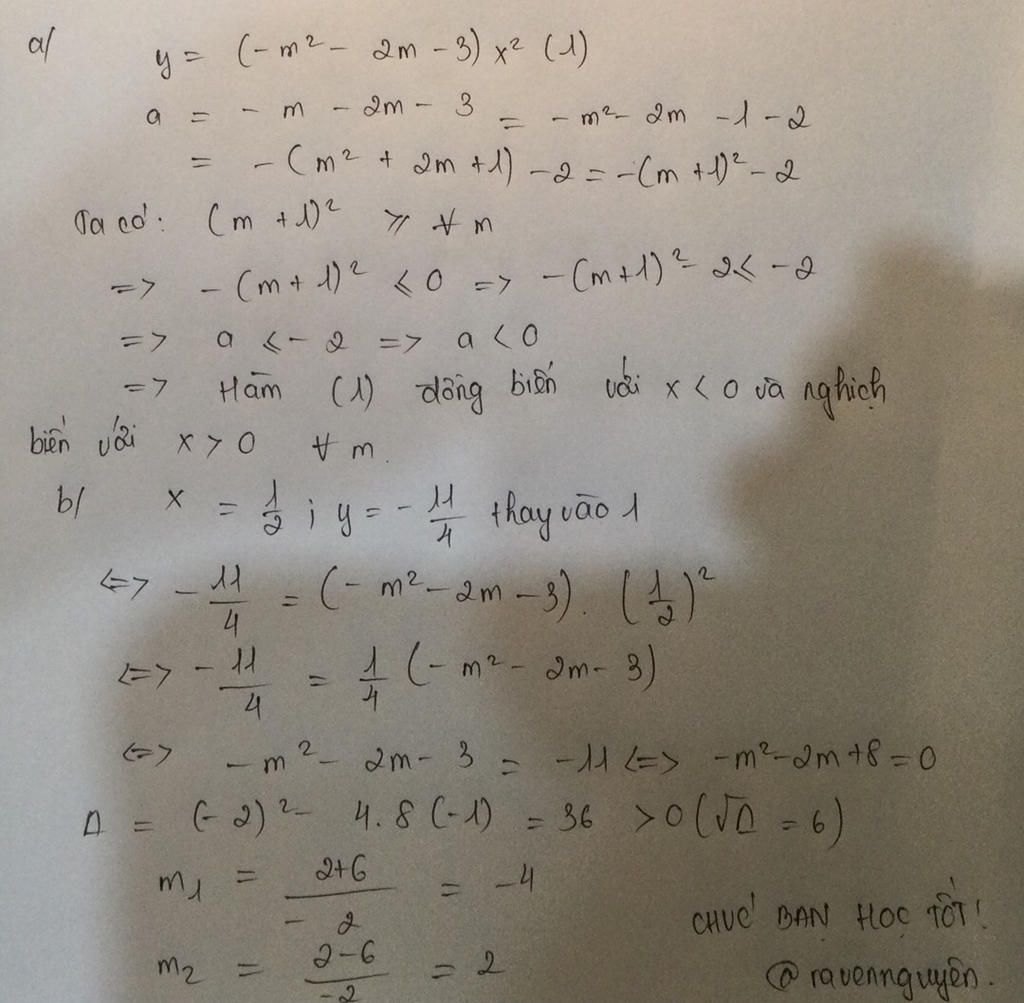 a/ y = (-m² - 2m - 3) x² (1)
a = - m - 2m - 3 = - m² - 2m - 1 - 2
= - (m² + 2m + 1) - 2 = -(m + 1)² - 2
Ta có: (m + 1)² ⩾ ∀ m
=> - (m + 1)² ⩽ 0 => -(m+1)² - 2 ⩽ -2
=> a ⩽ - 2 => a < 0
=> Hàm (1) đồng biến với x < 0 và nghịch
biến với x > 0 ∀ m.
b/ x = 1/2 ; y = - 11/4 thay vào 1
<=> - 11/4 = (- m² - 2m - 3) . (1/2)²
<=> - 11/4 = 1/4 (- m² - 2m - 3)
<=> - m² - 2m - 3 = -11 <=> -m² - 2m + 8 = 0
Δ = (-2)² - 4.8 (-1) = 36 > 0 (√Δ = 6)
m₁ = (2+6)/(-2) = -4
CHÚC BẠN HỌC TỐT!
m₂ = (2-6)/(-2) = 2
@ravennguyên.